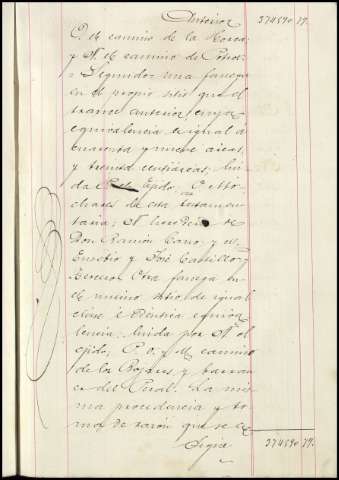 Anterior 37459019.
P. el camino de la Horca
y N. el camino de
Segundo: una fanega
en el propio sitio que el
trance anterior, cuya
equivalencia e igual á
cuarenta y nueve áreas,
y treinta centiáreas, lin
da Ejido; O. otto
chares de esta testamen
taria; N. herederos de
Don Ramón Cano y
Eusebio y José Castillo y
Tercero. Otra fanega en
el mismo sitio, de igual
clase é idéntica equiva
lencia: linda por N. el
ejido; P. y el camino
de los y barran
co del Peral. La mis
ma procedencia y to
ma de razón que se
Sigue 37459019.